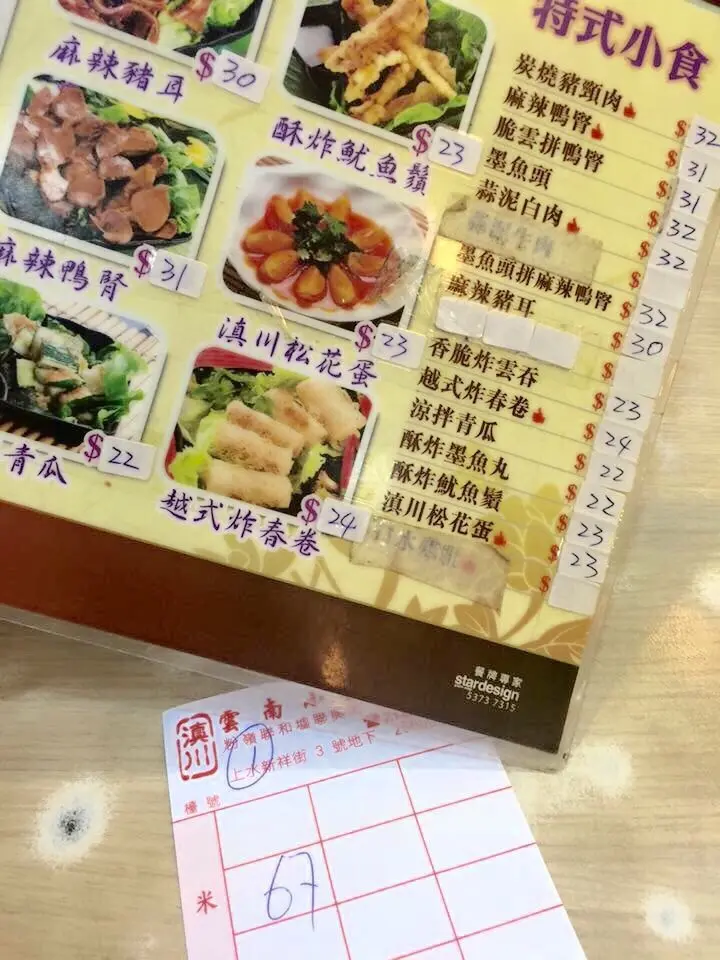 特式小食
炭燒豬頸肉 $32
麻辣鴨腎 $31
脆雲拼鴨腎 $31
墨魚頭 $32
蒜泥白肉 $32
墨魚頭拼麻辣鴨腎 $32
麻辣豬耳 $30
香脆炸雲吞 $23
越式炸春卷 $24
涼拌青瓜 $22
酥炸墨魚丸 $22
酥炸魷魚鬚 $23
滇川松花蛋 $23
$
麻辣豬耳 $30
酥炸魷魚鬚 $23
麻辣鴨腎 $31
滇川松花蛋 $23
青瓜 $22
越式炸春卷 $24
餐牌專家
stardesign
5373 7315
滇川
雲南
粉嶺聯和墟聯
上水新祥街 3 號地下
1
檯號
米
67